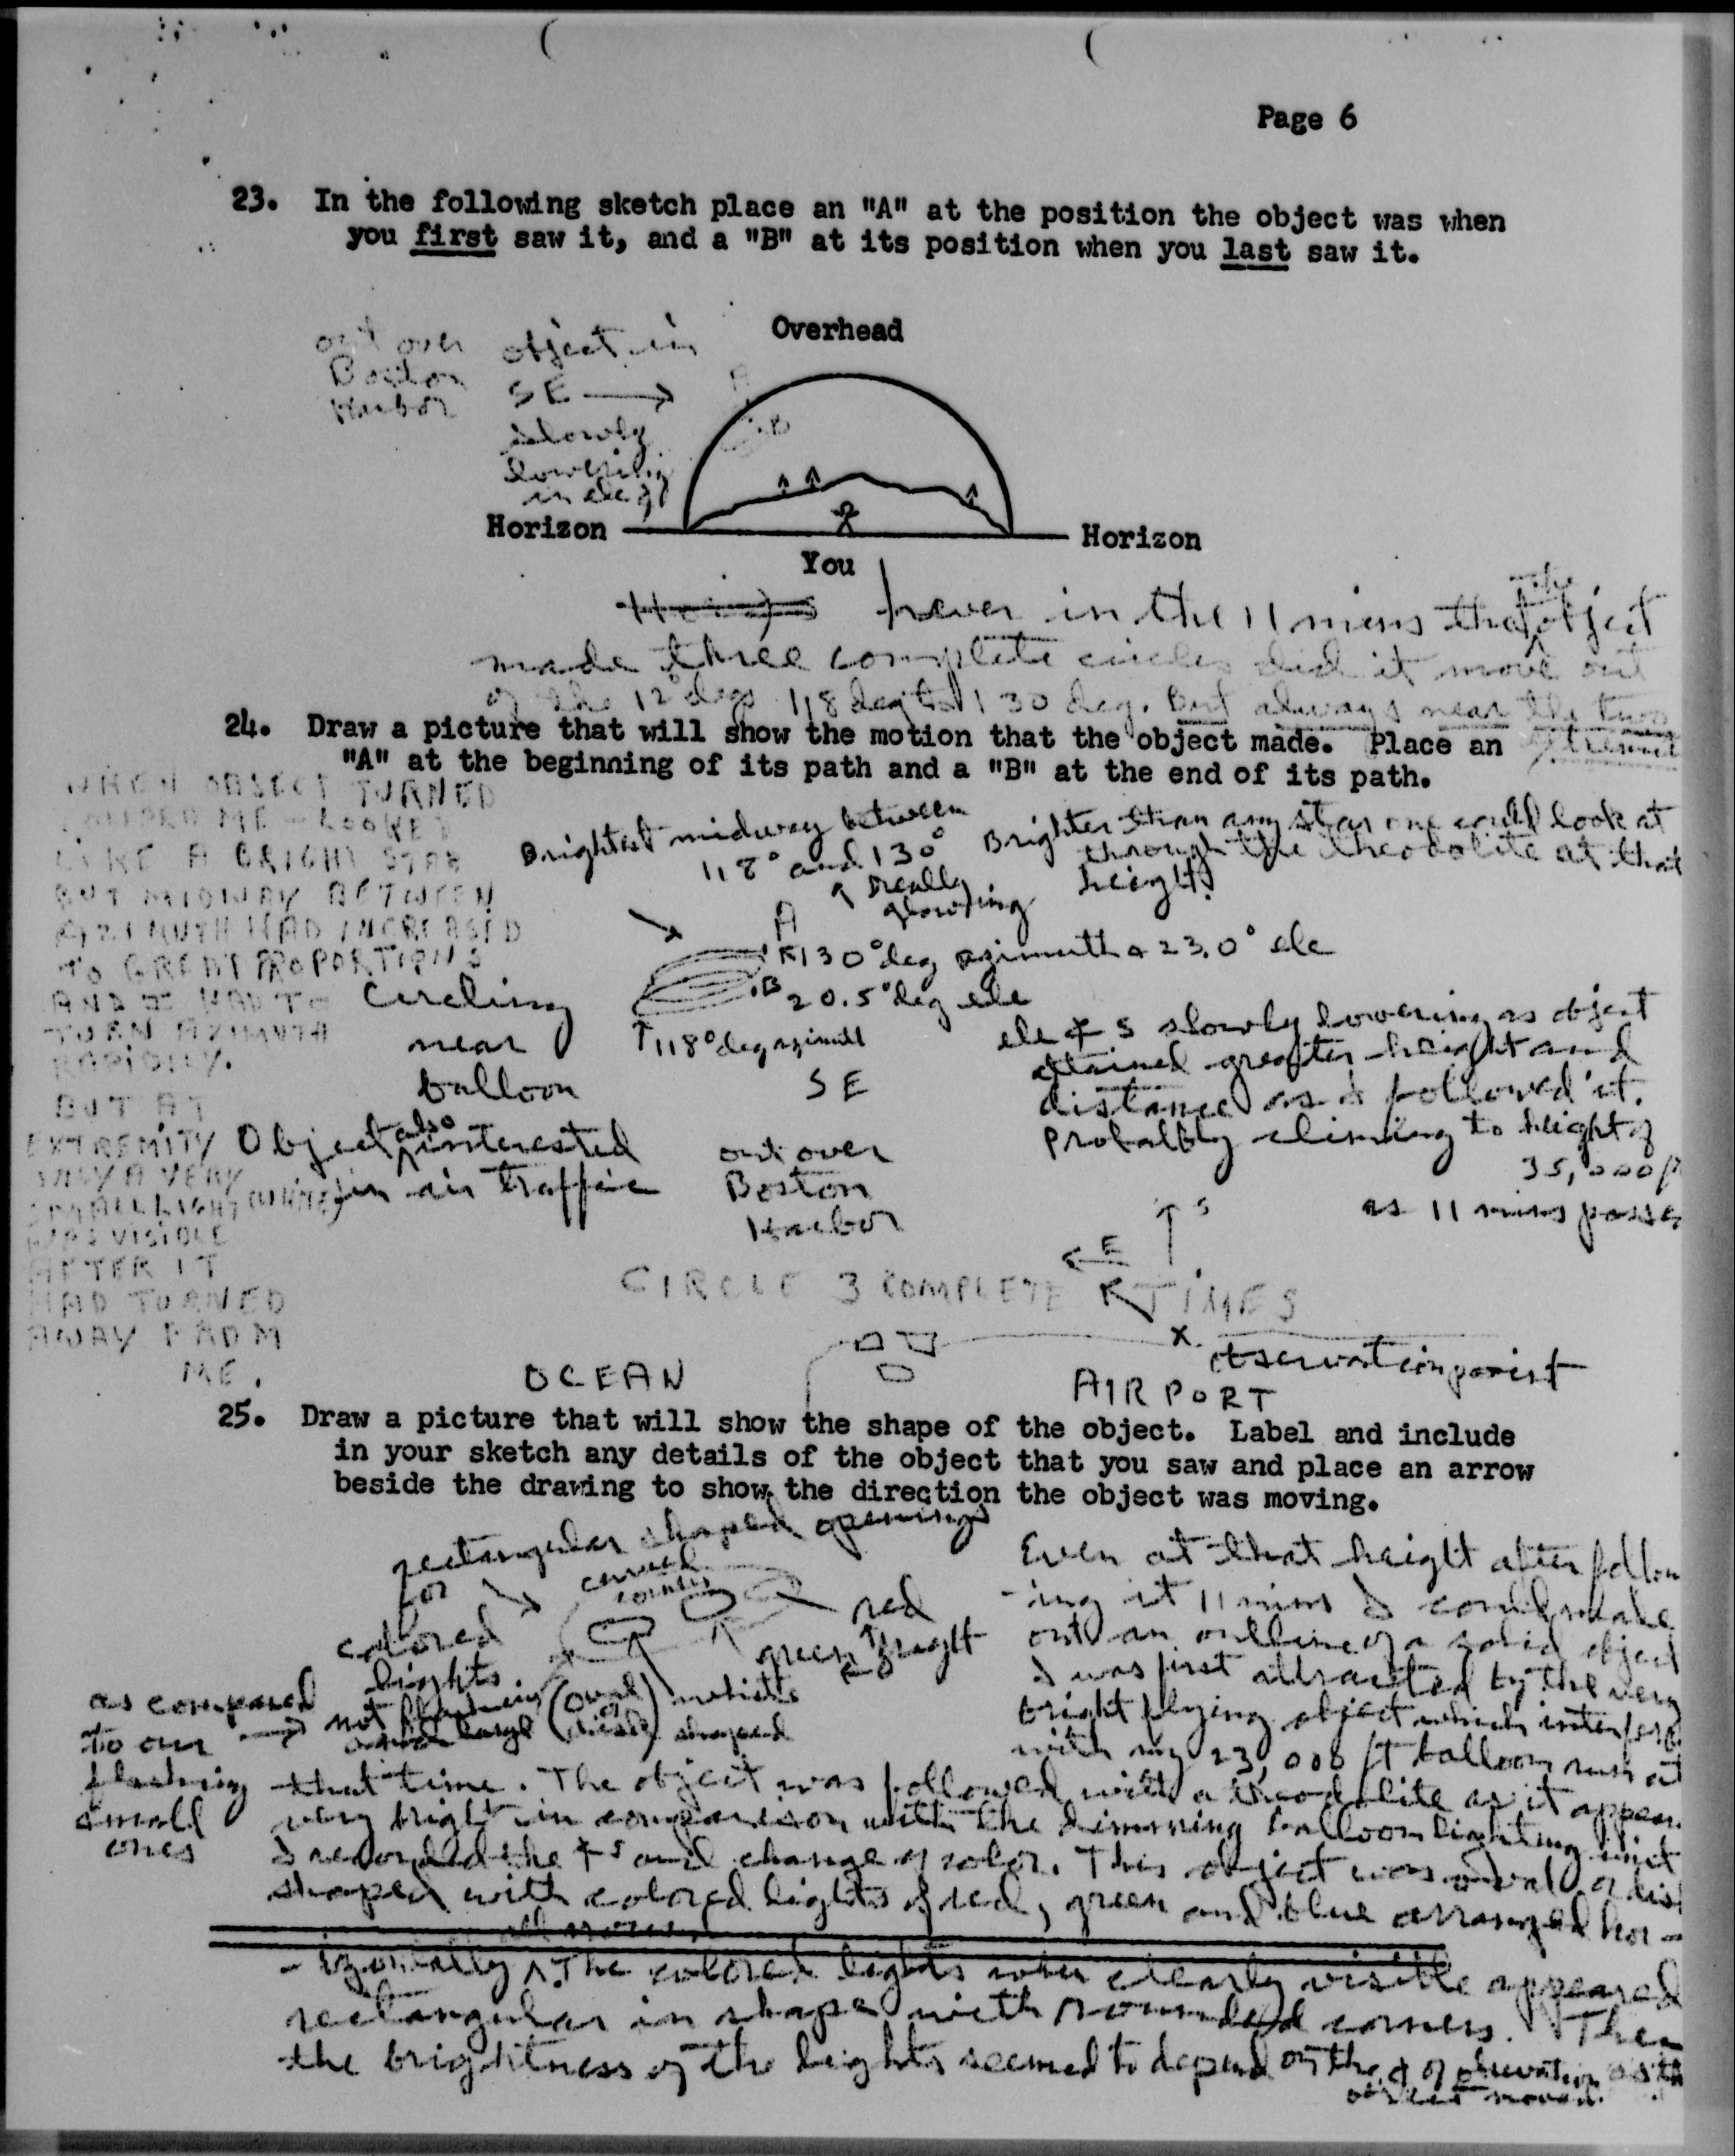 Page 6
23. In the following sketch place an "A" at the position the object was when
you first saw it, and a "B" at its position when you last saw it.
out over
Boston
Harbor
object in
SE →
slowly
lowering
in deg
Overhead
A
B
Horizon
Horizon
You
never in the 11 mins that the object
made three complete circles did it move out
of the 12° degs 118 deg to 130 deg. But always near the two
24. Draw a picture that will show the motion that the object made. Place an
"A" at the beginning of its path and a "B" at the end of its path.
WHEN OBJECT TURNED
TOWARD ME LOOKED
LIKE A BRIGHT STAR
BUT MIDWAY BETWEEN
AZIMUTH HAD INCREASED
TO GREAT PROPORTIONS
AND I HAD TO
TURN AZIMUTH
RAPIDLY.
BUT AT
EXTREMITY
ONLY A VERY
SMALL LIGHT (WHITE)
WAS VISIBLE
AFTER IT
HAD TURNED
AWAY FROM
ME.
Brightest midway between
118° and 130°
a really
glowing
Brighter than any star one could look at
through the theodolite at that
height
A
130° deg azimuth & 23.0° ele
B 20.5° deg ele
118° deg azimuth
SE
Circling
near
balloon
Object also interested
in air traffic
out over
Boston
Harbor
ele ∡s slowly lowering as object
attained greater height and
distance as I followed it.
Probably climbing to height of
35,000 ft
as 11 mins passed
S
E
CIRCLE 3 COMPLETE TIMES
X
observation point
OCEAN
AIRPORT
25. Draw a picture that will show the shape of the object. Label and include
in your sketch any details of the object that you saw and place an arrow
beside the drawing to show the direction the object was moving.
rectangular shaped openings
for
colored
lights
curved
corners
red
green
bright
not flashing
large
(oval or disk) shaped
as compared
to our →
flashing
small
ones
Even at that height after follow
-ing it 11 mins I could make
out an outline of a solid object
I was first attracted by the very
bright flying object which interfered
with my 23,000 ft balloon run at
that time. The object was followed with a theodolite as it appear
very bright in comparison with the dimming balloon lighting unit
I recorded the ∡s and change of color. This object was oval or disk
shaped with colored lights of red, green and blue arranged hor-
all around
-izontally. The colored lights when clearly visible appeared
rectangular in shape with rounded corners. Then
the brightness of the lights seemed to depend on the ∡ of observation as the
object moved.